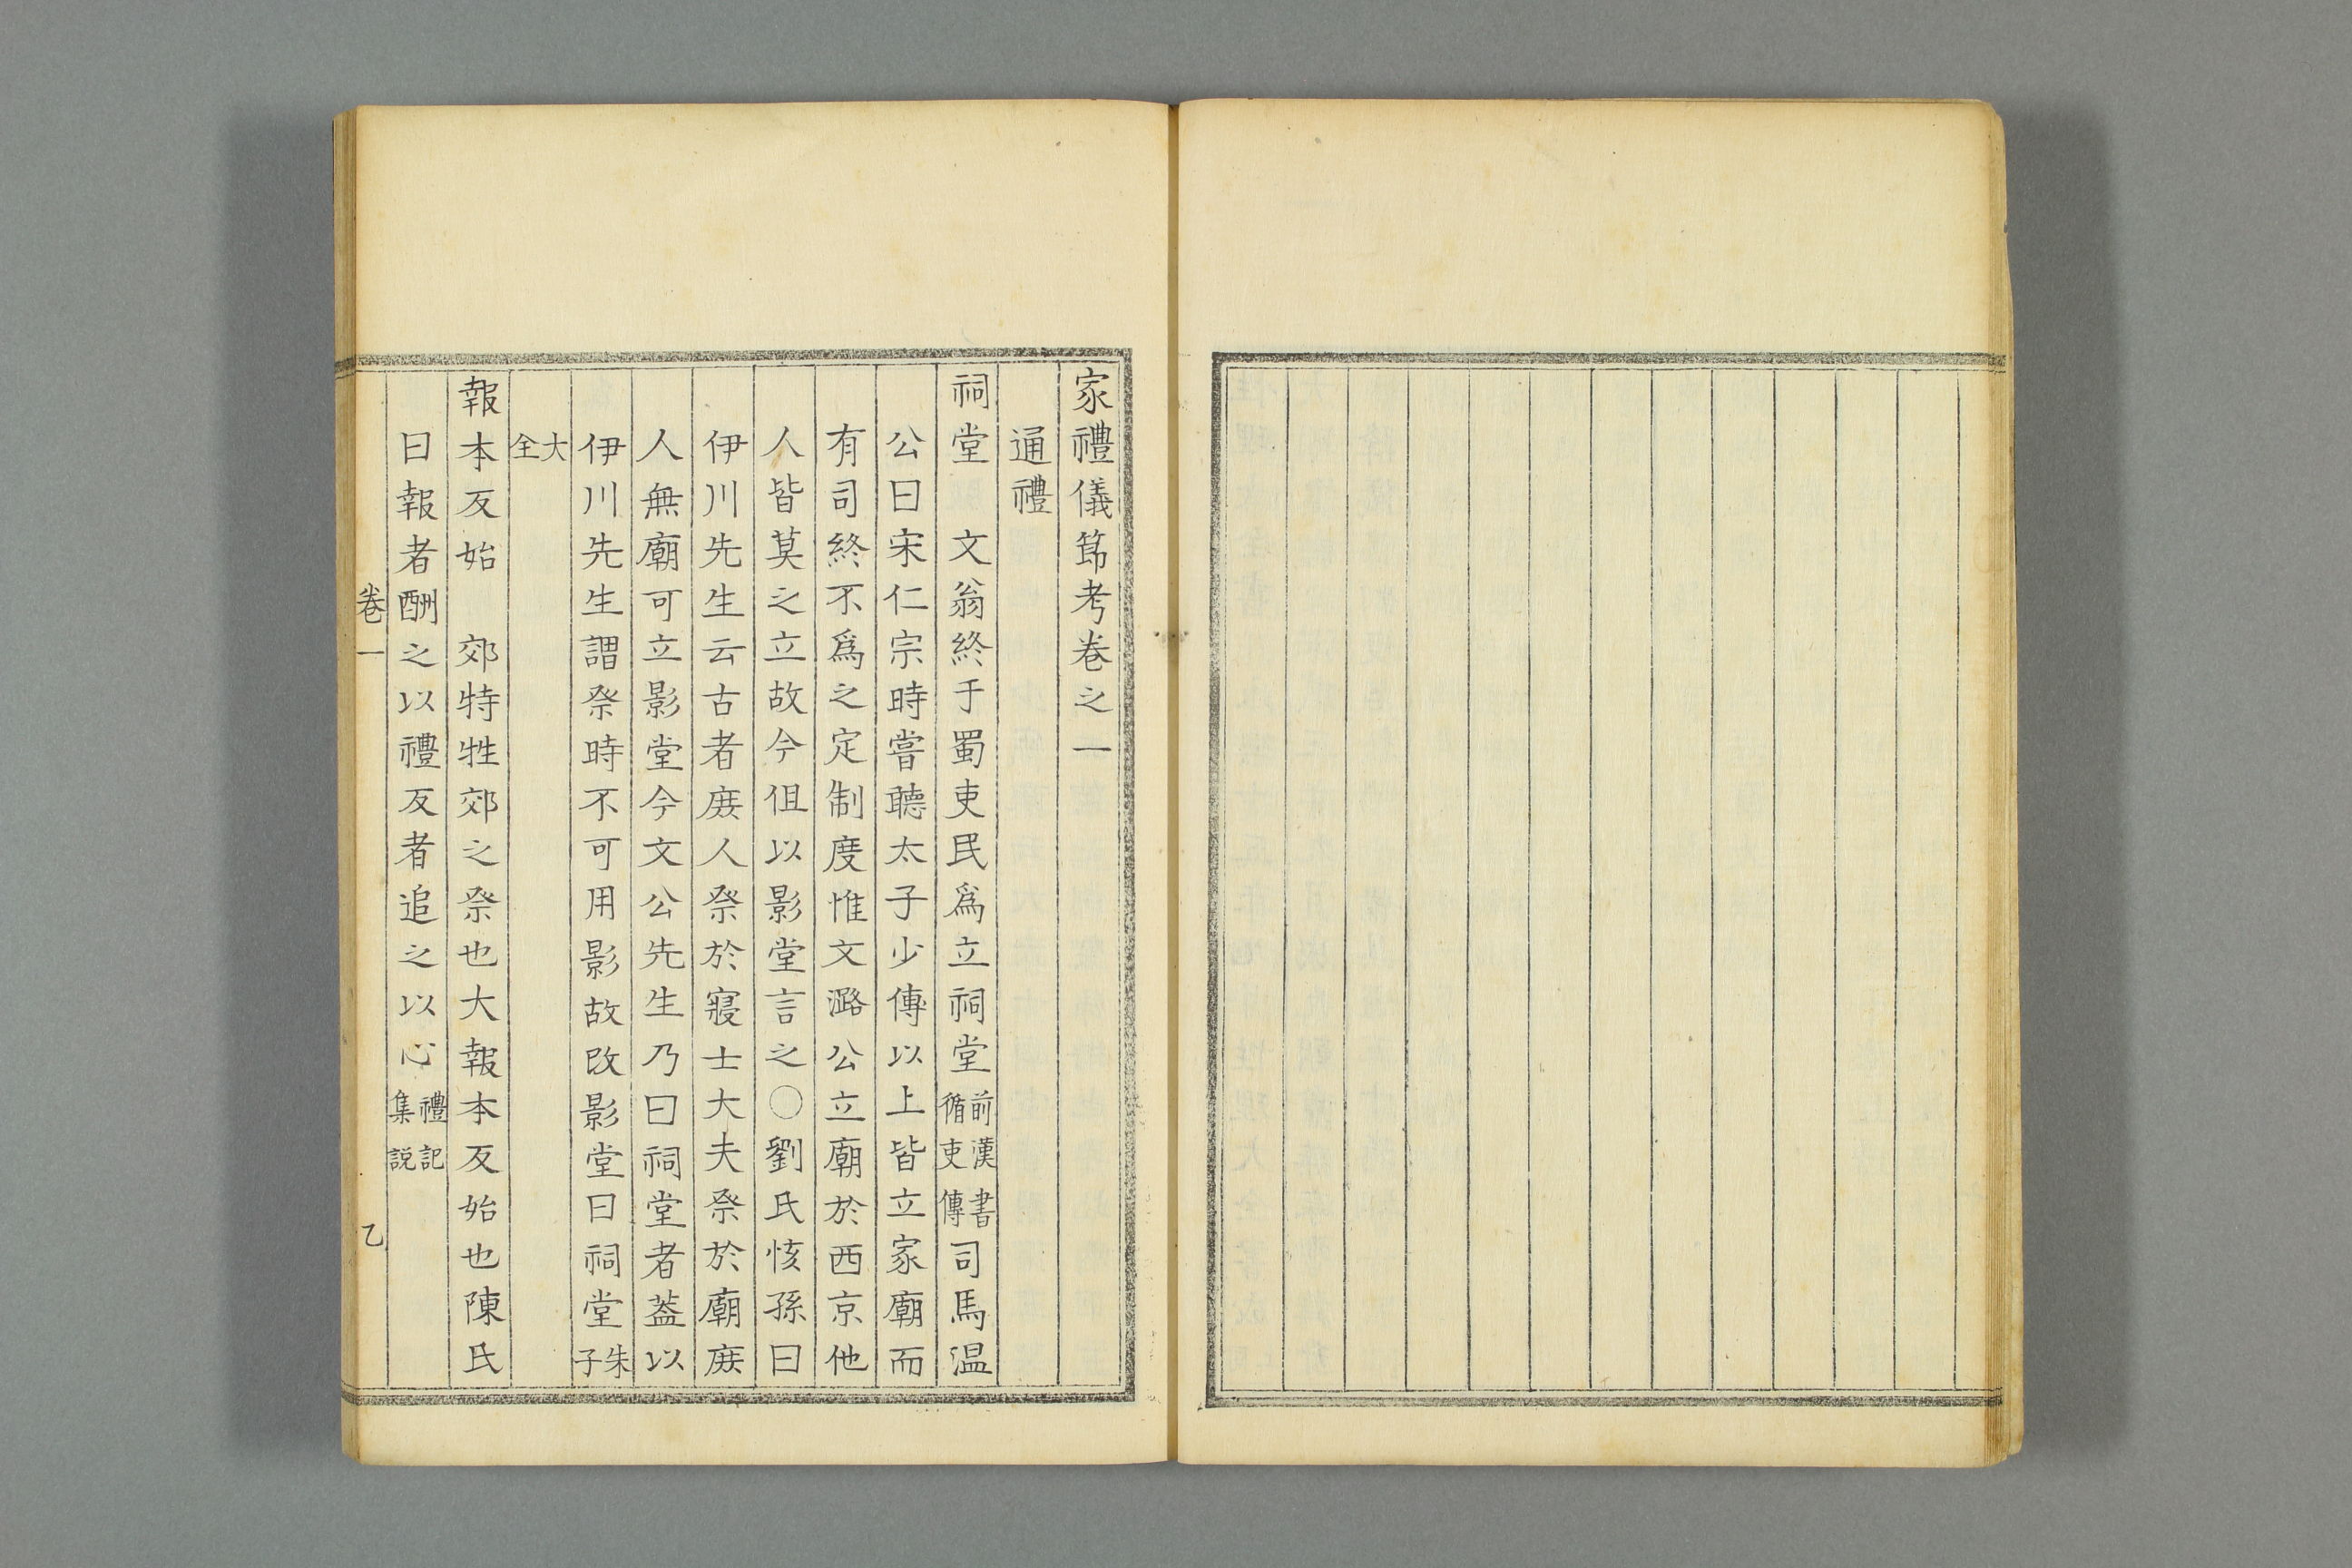 家禮儀節考卷之一
通禮
祠堂　文翁終于蜀吏民爲立祠堂前漢書循吏傳司馬温
公曰宋仁宗時嘗聽太子少傳以上皆立家廟而
有司終不爲之定制度惟文潞公立廟於西京他
人皆莫之立故今但以影堂言之〇劉氏㤥孫曰
伊川先生云古者庻人祭於寢士大夫祭於廟庻
人無廟可立影堂今文公先生乃曰祠堂者葢以
伊川先生謂祭時不可用影故改影堂曰祠堂朱子
大全
報本反始　郊特牲郊之祭也大報本反始也陳氏
曰報者酬之以禮反者追之以心禮記集説
卷一　乙